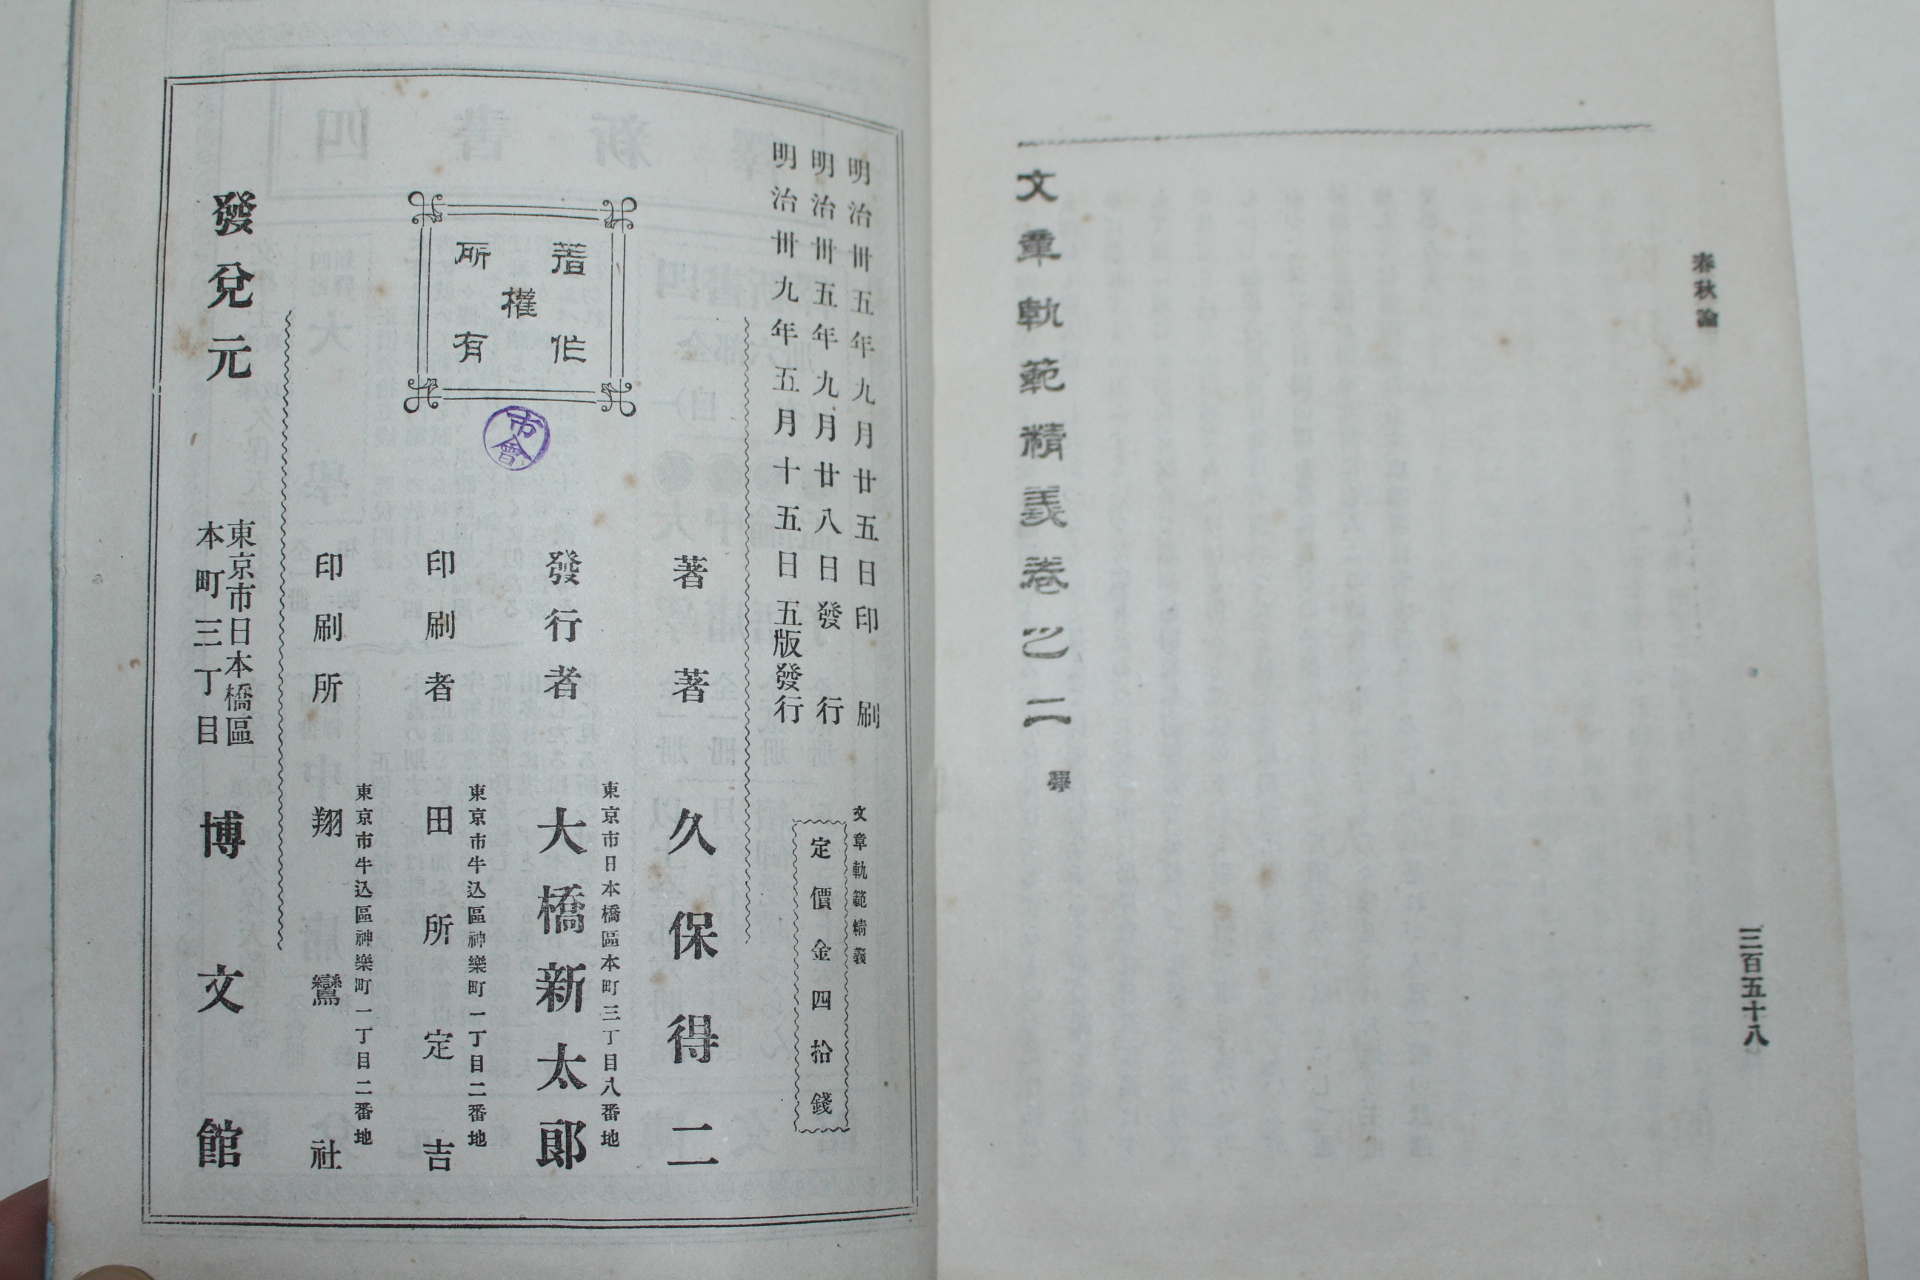 春秋論
三百五十八
文章軌範精義卷之二 畢
明治卅五年九月廿五日印刷
明治卅五年九月廿八日發行
明治卅九年五月十五日五版發行
文章軌範精義
定價金四拾錢
著作權所有
市會
著者 久保得二
東京市日本橋區本町三丁目八番地
發行者 大橋新太郎
東京市牛込區神樂町一丁目二番地
印刷者 田所定吉
東京市牛込區神樂町一丁目二番地
印刷所 翔鸞社
發兌元
東京市日本橋區
本町三丁目
博文館